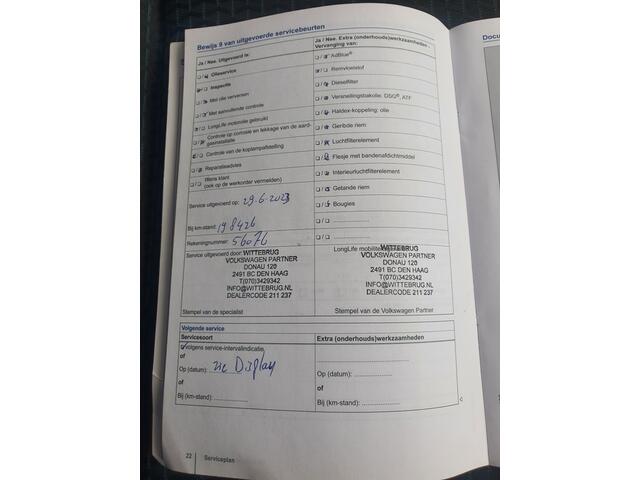 Docu
Bewijs 9 van uitgevoerde servicebeurten
Ja / Nee. Uitgevoerd is:
Ja / Nee. Extra (onderhouds)werkzaamheden -
Vervanging van:
Olieservice
AdBlue®
Inspectie
Remvloeistof
Met olie verversen
Dieselfilter
Met aanvullende controle
Versnellingsbakolie: DSG®, ATF
LongLife motorolie gebruikt
Haldex-koppeling: olie
Controle op corrosie en lekkage van de aard-
gasinstallatie
Geribde riem
Controle van de koplampafstelling
Luchtfilterelement
Reparatieadvies
Flesje met bandenafdichtmiddel
Wens klant
(ook op de werkorder vermelden)
Interieurluchtfilterelement
Service uitgevoerd op: 29.6.2023
Getande riem
Bougies
Bij km-stand: 198426
Rekeningnummer: 56076
Service uitgevoerd door:
LongLife mobiliteits
WITTEBRUG
VOLKSWAGEN PARTNER
DONAU 120
2491 BC DEN HAAG
T(070)3429342
INFO@WITTEBRUG.NL
DEALERCODE 211 237
WITTEBRUG
VOLKSWAGEN PARTNER
DONAU 120
2491 BC DEN HAAG
T(070)3429342
INFO@WITTEBRUG.NL
DEALERCODE 211 237
Stempel van de specialist
Stempel van de Volkswagen Partner
Volgende service
Servicesoort
Extra (onderhouds)werkzaamheden
volgens service-intervalindicatie.
of
Op (datum): zie Display
Op (datum): ....................
of
of
Bij (km-stand): ..............
Bij (km-stand): ..............
22
Serviceplan